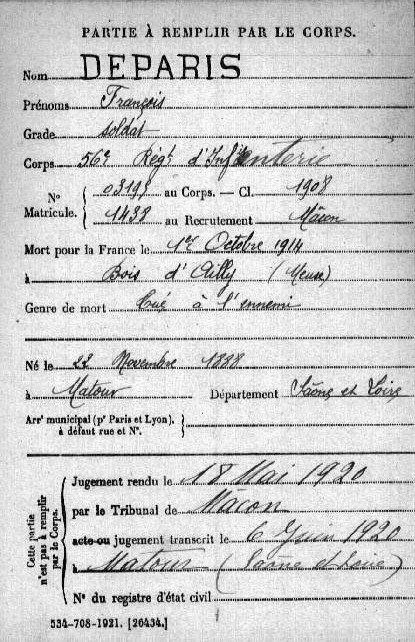 PARTIE À REMPLIR PAR LE CORPS.
Nom DEPARIS
Prénoms François
Grade soldat
Corps 56e Régt d'Infanterie
N° Matricule. 03193 au Corps. — Cl. 1908
1438 au Recrutement Mâcon
Mort pour la France le 1er Octobre 1914
à Bois d'Ailly (Meuse)
Genre de mort tué à l'ennemi
Né le 22 Novembre 1888
à Matour Département Saône et Loire
Arrt municipal (pr Paris et Lyon), à défaut rue et N°.
Cette partie n'est pas à remplir par le Corps.
Jugement rendu le 18 Mai 1920
par le Tribunal de Macon
acte ou jugement transcrit le 6 Juin 1920
à Matour (Saone et Loire)
N° du registre d'état civil
534-708-1921. [26434.]